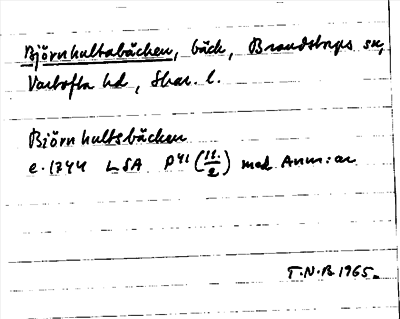 Björnhultabäcken, bäck, Brandstorps sn,
Vartofta hd, Skar. l.
Björnhultsbäcken
e. 1744 LSA P41 (11/2) med Anm:ar
T.N.B. 1965.